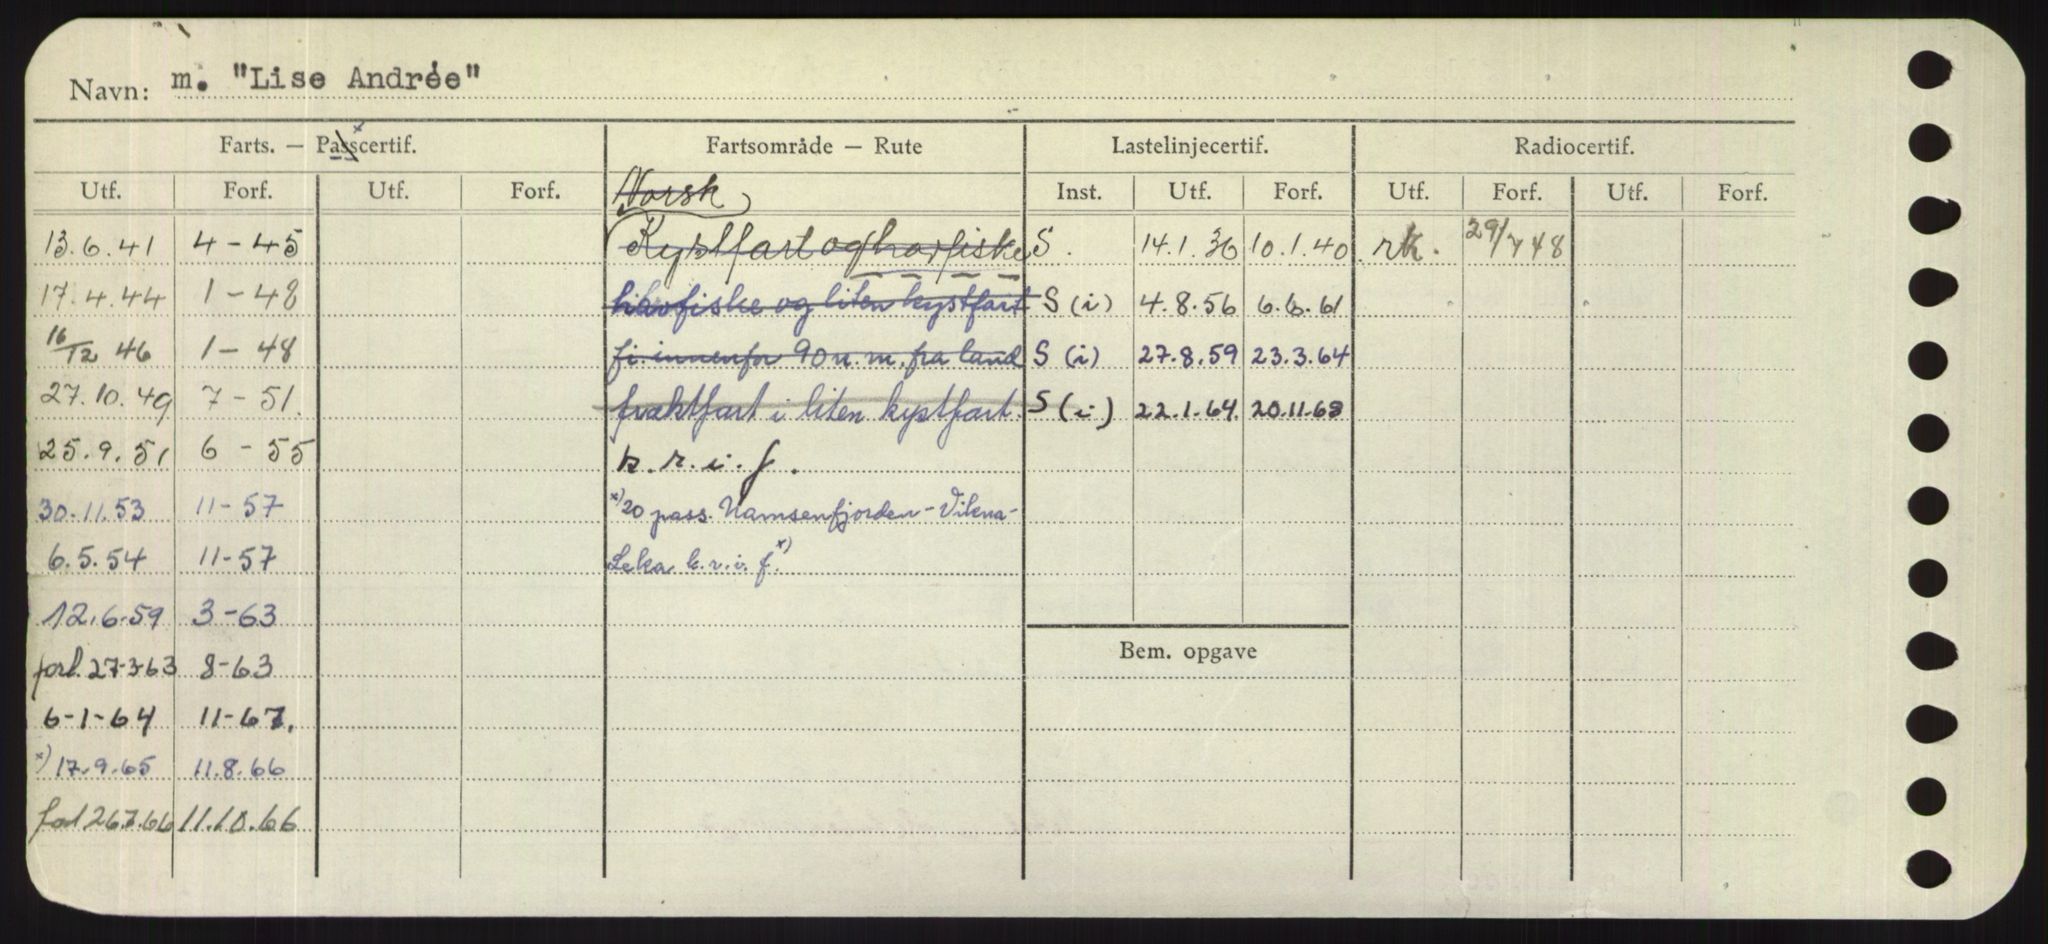 Navn: m. "Lise Andrée"
Farts. — Passcertif. x Fartsområde — Rute Lastelinjecertif. Radiocertif.
Utf. Forf. Utf. Forf. Norsk Inst. Utf. Forf. Utf. Forf. Utf. Forf.
13.6.41 4-45 Kystfart og havfiske S. 14.1.36 10.1.40 rk. 29/7 48
17.4.44 1-48 havfiske og liten kystfart S (i) 4.8.56 6.6.61
16/12 46 1-48 fi. innenfor 90 n. m. fra land S (i) 27.8.59 23.3.64
27.10.49 7-51. fraktfart i liten kystfart. S (i) 22.1.64. 20.11.68
25.9.51 6-55 k. r. i. f.
30.11.53 11-57 x) 20 pass. Namsenfjorden - Vikna -
6.5.54 11-57 Leka k. r. i. f. x)
12.6.59 3-63
forl. 27-3-63 8-63 Bem. opgave
6-1-64 11-67.
x) 17.9.65 11.8.66
forl 26.7.66 11.10.66